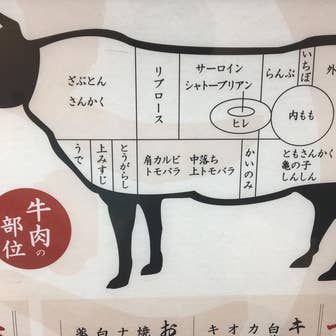 ざぶとん
さんかく
リブロース
サーロイン
シャトーブリアン
ヒレ
らんぷ
いちぼ
外
内もも
うで
上みすじ
とうがらし
肩カルビ
トモバラ
中落ち
上トモバラ
かいのみ
ともさんかく
亀の子
しんしん
牛肉の
部位